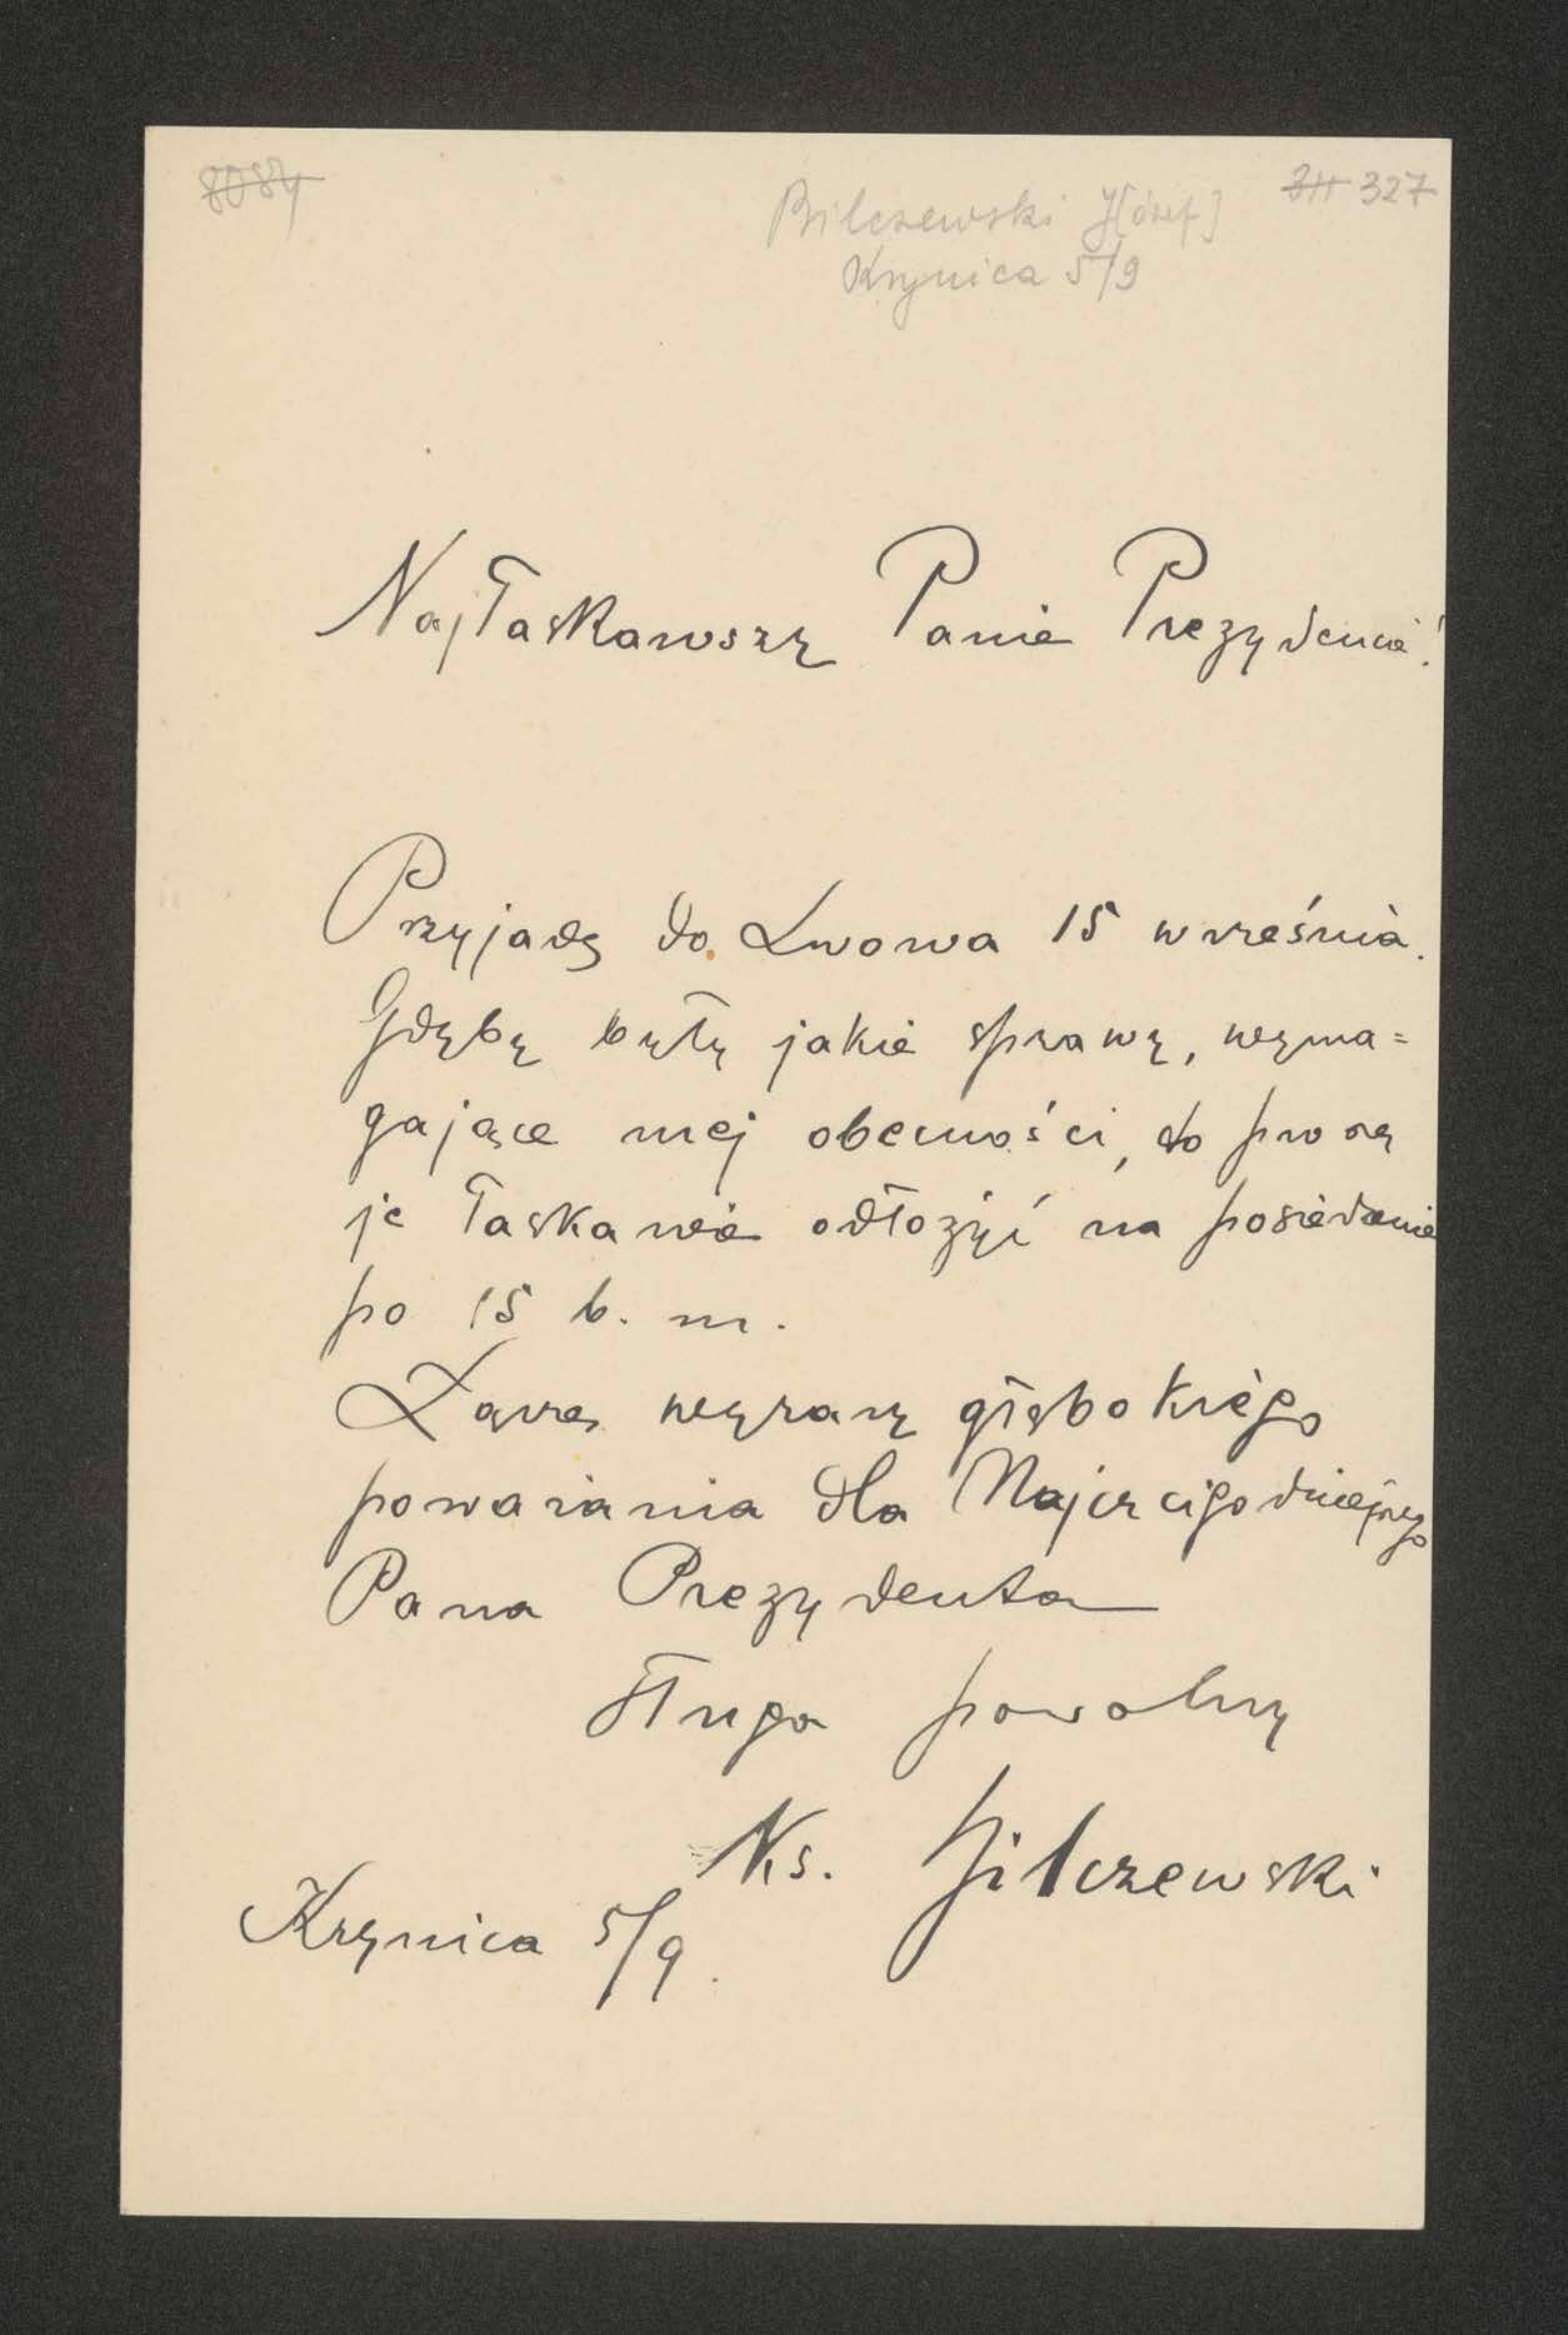 8084
311 327
Bilczewski J[ózef]
Krynica 5/9
Najłaskawszy Panie Prezydencie!
Przyjadę do Lwowa 15 września.
Gdyby były jakie sprawy, wyma=
gające mej obecności, to proszę
je łaskawie odłożyć na posiedzenie
po 15 b. m.
Łączę wyrazy głębokiego
poważania dla Najczcigodniejszego
Pana Prezydenta
Sługa powolny
Ks. Bilczewski
Krynica 5/9.